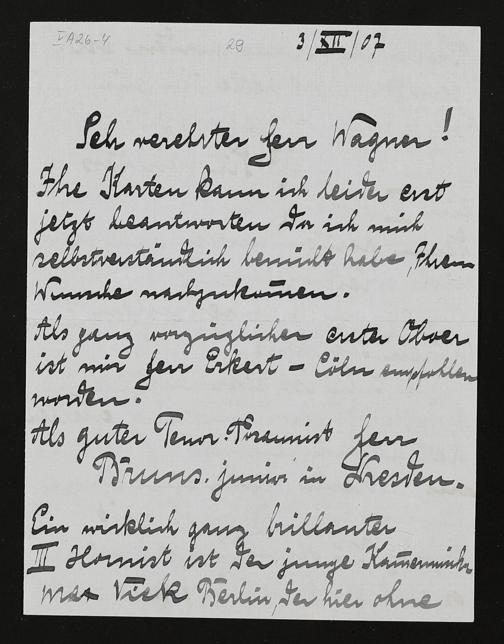 V A26-4 29 3/XII/07
Sehr verehrter Herr Wagner!
Ihre Karten kann ich leider erst
jetzt beantworten da ich mich
selbstverständlich bemüht habe, Ihrem
Wunsche nachzukom̅en.
Als ganz vorzüglicher erster Oboer
ist mir Herr Erkert – Cöln empfohlen
worden.
Als guter Tenor-Posaunist Herr
Bruns. junior in Dresden.
Ein wirklich ganz brillanter
III Hornist ist der junge
Max Vick Berlin, der hier ohne